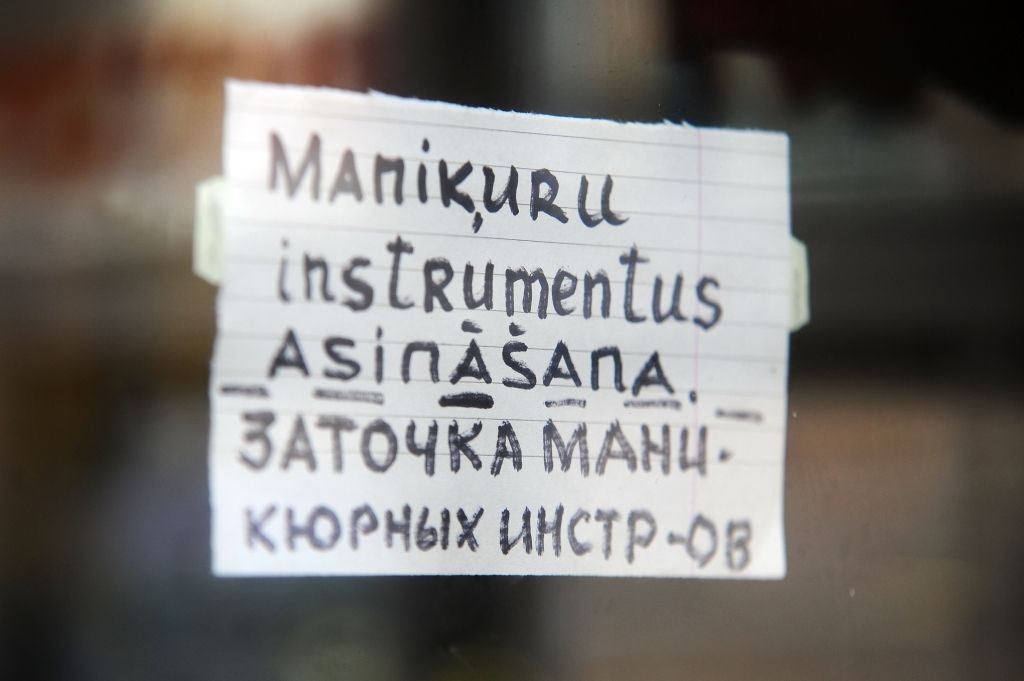 Maniķuru
instrumentus
asināšana.
ЗАТОЧКА МАНИ-
КЮРНЫХ ИНСТР-ОВ